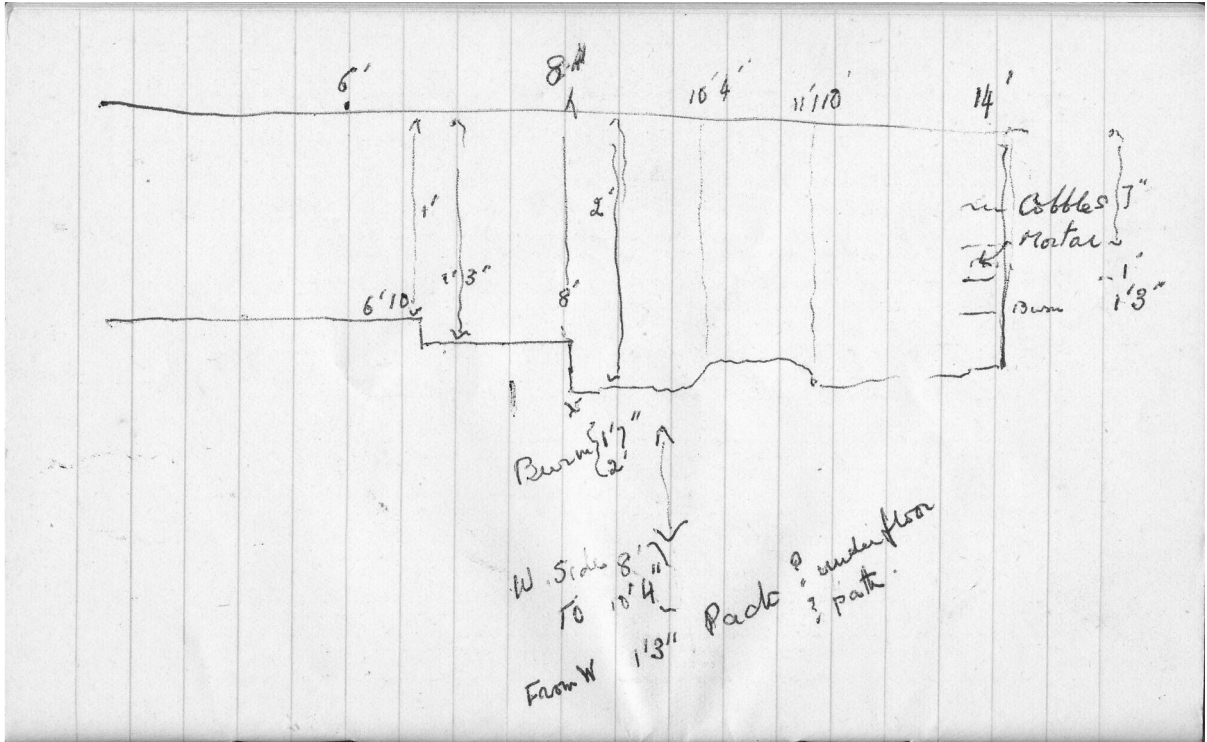 6' 8' 10'4" 11'10" 14'
1' 2' Cobbles 7"
Mortar
1'3" 1'
6'10 8' Burn 1'3"
Burn 1'7"
2'
W. Side 8'
TO 10'4"
From W 1'3" Pack ? under floor
? path.